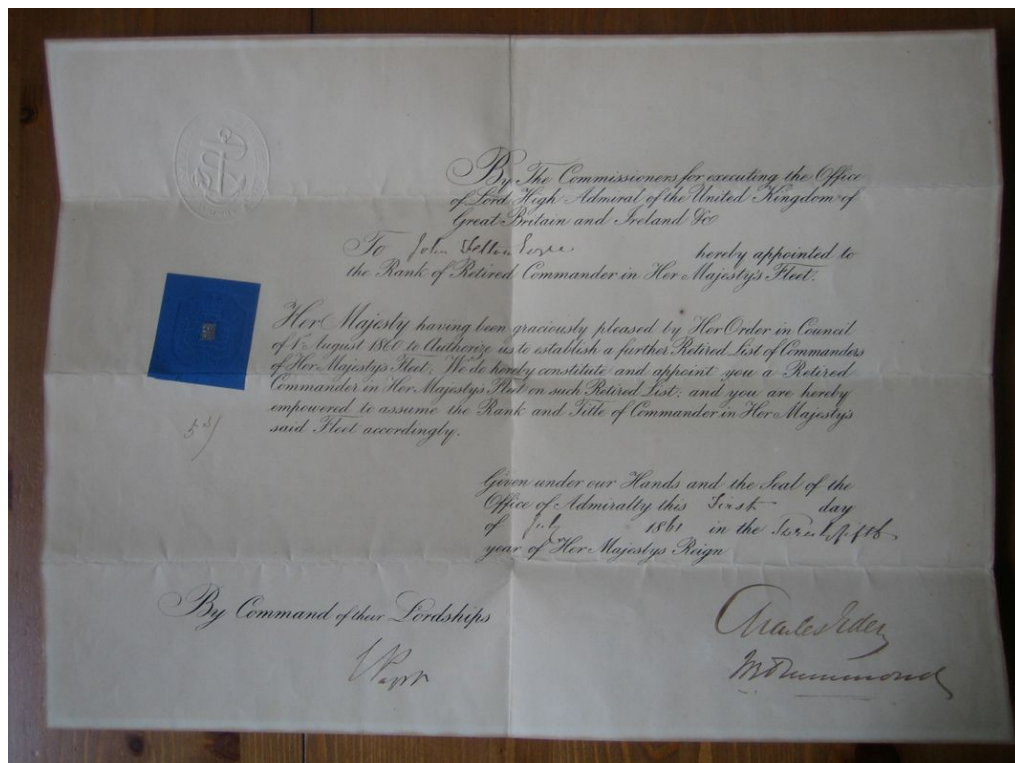 By The Commissioners for executing the Office
of Lord High Admiral of the United Kingdom of
Great Britain and Ireland &c
To John hereby appointed to
the Rank of Retired Commander in Her Majesty's Fleet.
Her Majesty having been graciously pleased by Her Order in Council
of 1 August 1860 to Authorize us to establish a further Retired List of Commanders
of Her Majestys Fleet, We do hereby constitute and appoint you a Retired
Commander in Her Majestys Fleet on such Retired List; and you are hereby
empowered to assume the Rank and Title of Commander in Her Majesty's
said Fleet accordingly.
5s/
Given under our Hands and the Seal of the
Office of Admiralty this First day
of July 1861 in the
year of Her Majestys Reign
By Command of their Lordships
Charles Eden
Drummond